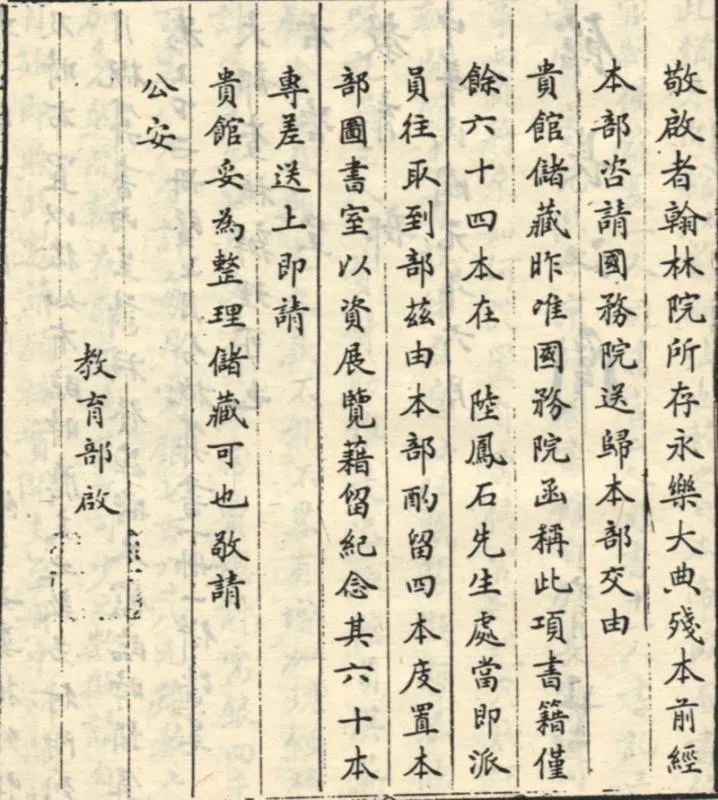 敬啟者翰林院所存永樂大典殘本前經
本部咨請國務院送歸本部交由
貴館儲藏昨准國務院函稱此項書籍僅
餘六十四本在 陸鳳石先生處當即派
員往取到部茲由本部酌留四本庋置本
部圖書室以資展覽藉留紀念其六十本
專差送上即請
貴館妥為整理儲藏可也敬請
公安
教育部啟